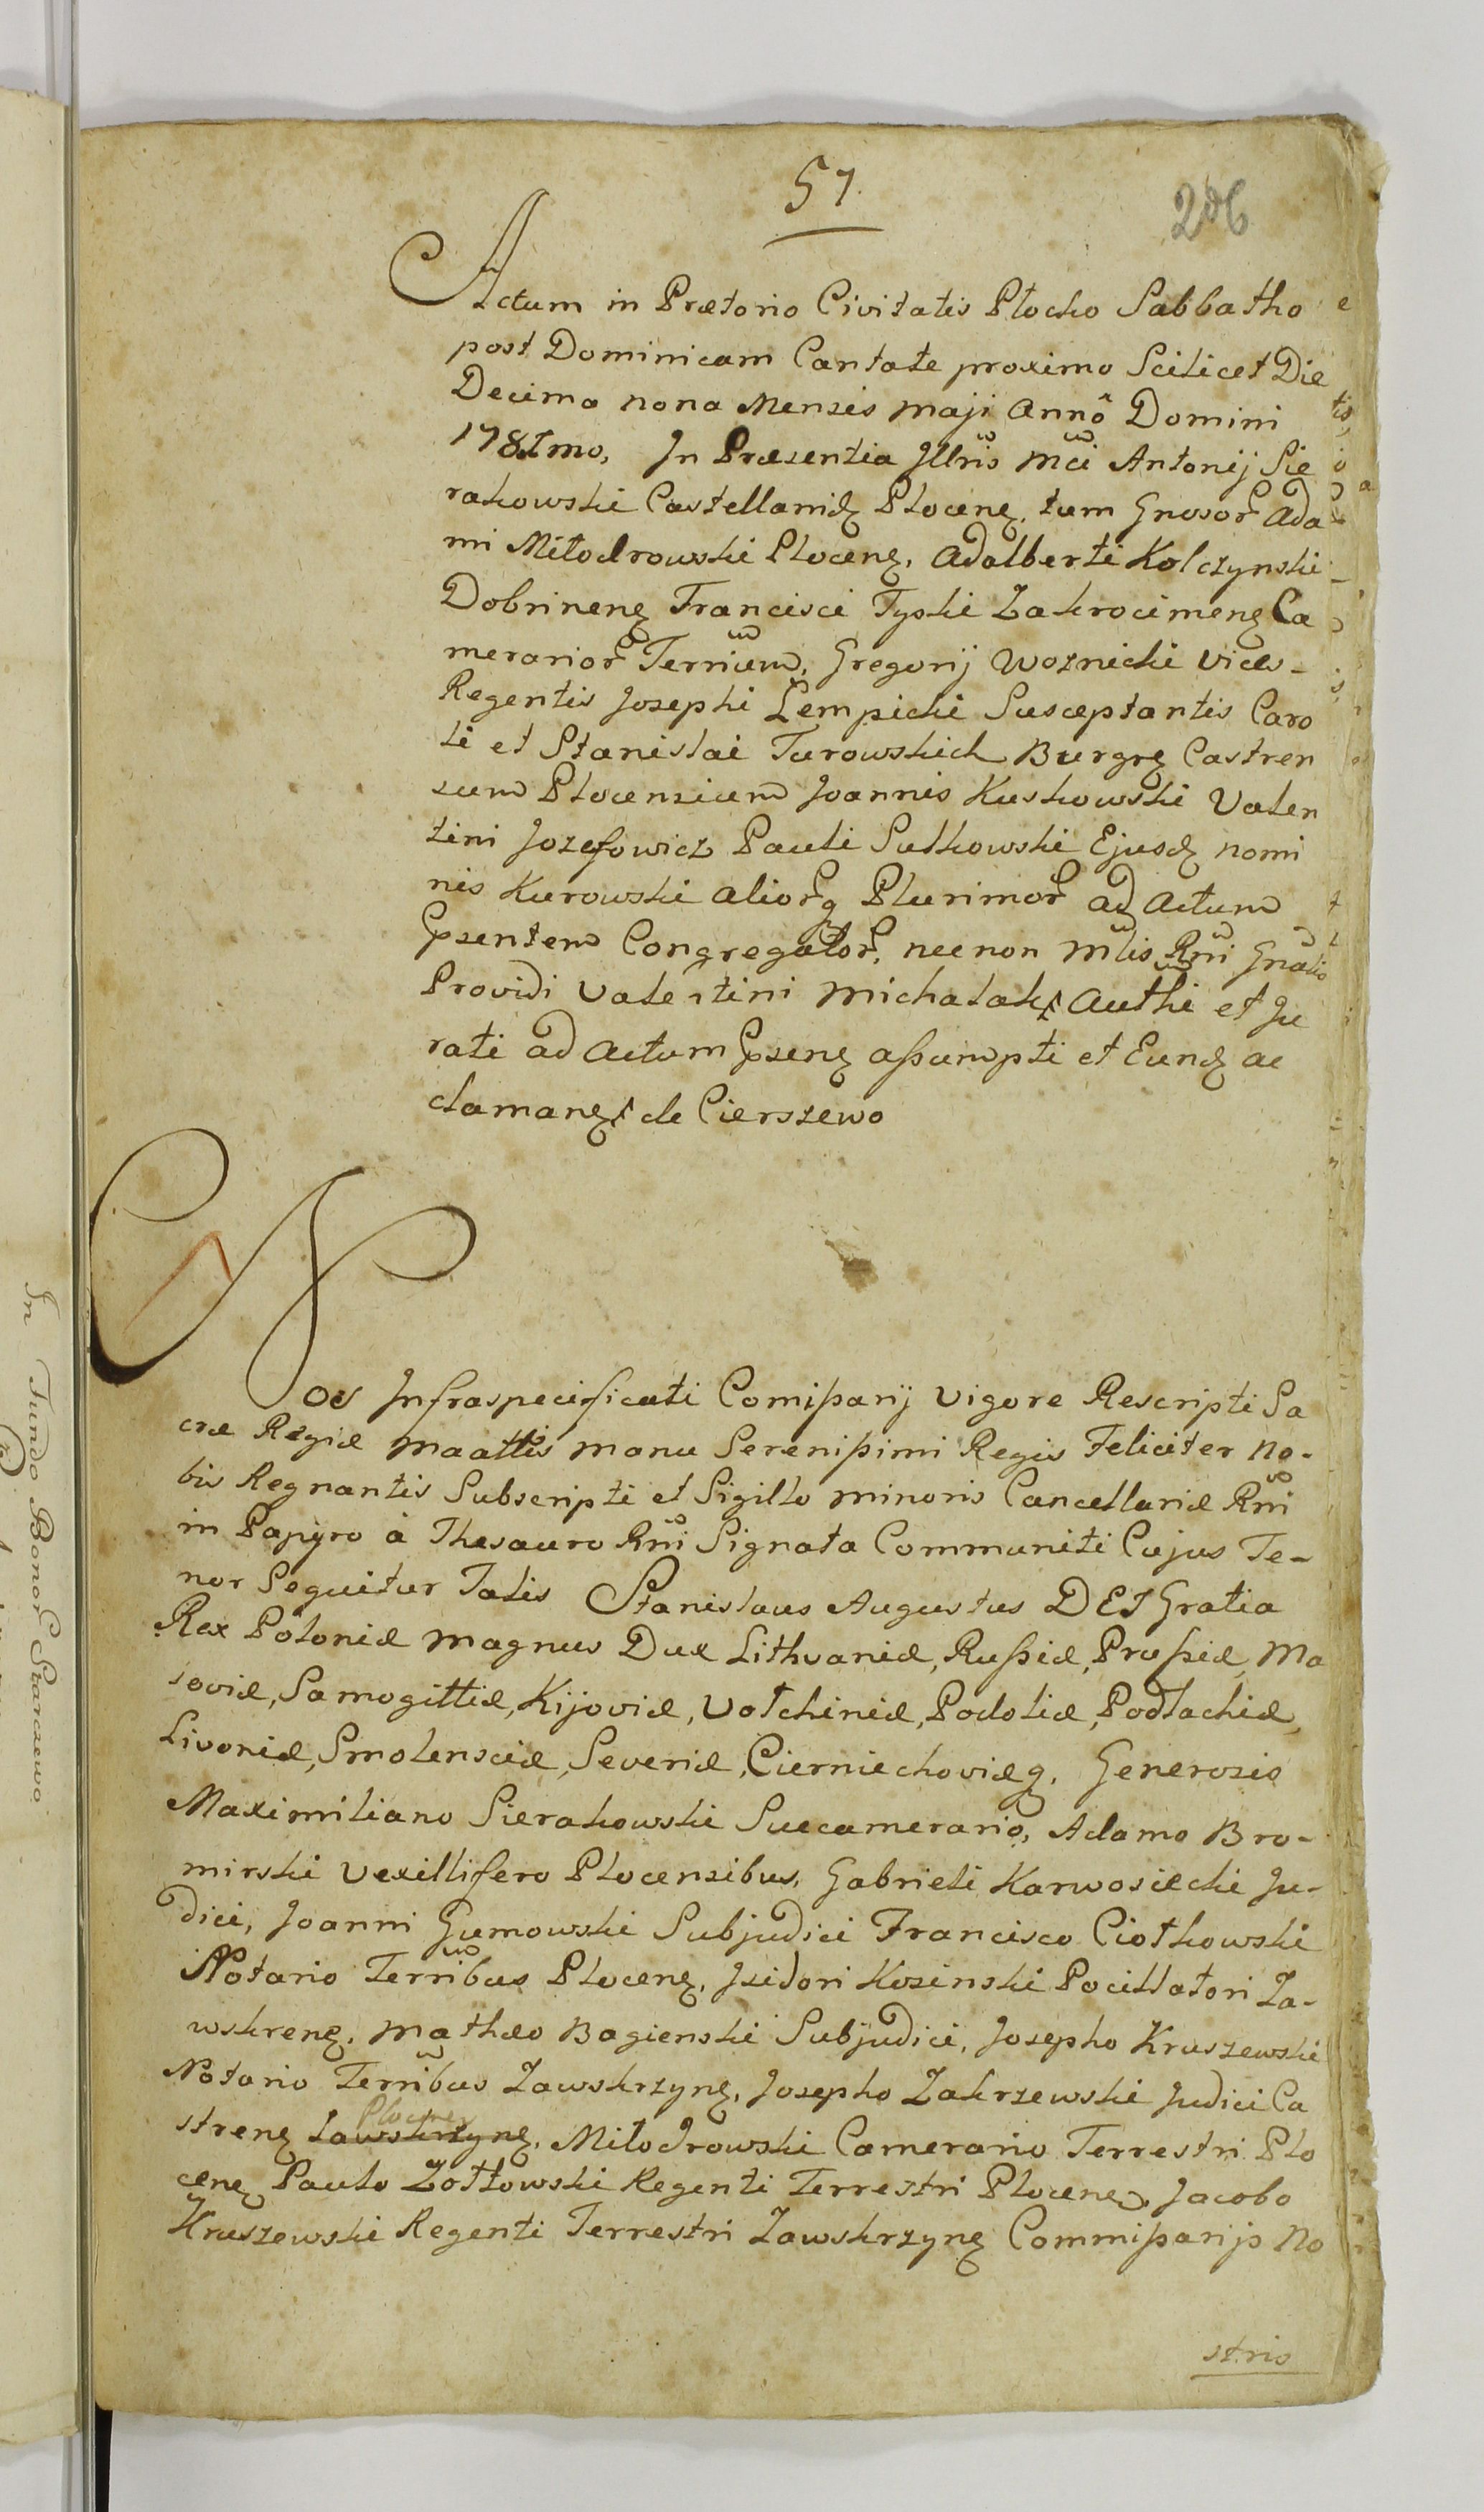 57.
206
Actum in Prætorio Civitatis Płocko Sabbatho
post Dominicam Cantate proximo Scilicet Die
Decima nona Mensis Maji Annô Domini
1781mo, In Præsentia Illris Mci Antonij Sie
rakowski Castellanidȩ Plocenȩ, tum Gnosor Ada
mi Miłodrowski Plocenȩ, Adalberti Kolczynski
Dobrinenȩ Francisci Tyski Zakrocimenȩ Ca
merarior Terrium, Gregorij Woznicki Vices-
Regentis Josephi Lempicki Susceptantis Caro
li et Stanislai Turowskich Burgrȩ Castren
sum Plocensium Joannis Kuskowski Valen
tini Jozefowicz Pauli Sutkowski Ejusdȩ nomi
nis Kurowski aliorq Plurimor ad Actum
Psentem Congregator, nec non Mlis Rni Gnalis
Providi Valentini Michalak Authi et Ju
rati ad Actum Psenȩ assumpti et Eundȩ ac
clamanȩ de Cierszewo
Nos Infraspecificati Comissarij vigore Rescripti Sa
cræ Regiæ Maattis manu Serenissimi Regis Feliciter No-
bis Regnantis Subscripti et Sigillo minoris Cancellariæ Rni
in Papyro à Thesauro Rni Signata Communiti Cujus Te-
nor Sequitur Talis Stanislaus Augustus DEI Gratia
Rex Poloniæ Magnus Dux Lithvaniæ, Russiæ, Prussiæ, Ma
soviæ, Samogittiæ, Kijoviæ, Volchiniæ, Podoliæ, Podlachiæ,
Livoniæ, Smolensciæ, Severiæ, Cierniechoviæq. Generosis
Maximiliano Sierakowski Succamerario, Adamo Bro-
mirski Vexillifero Plocensibus, Gabrieli Karwosiecki Ju-
dici, Joanni Gumowski Subjudici Francisco Ciołkowski
Notario Terribus Plocenȩ, Isidori Kosinski Pocillatori Za-
wskrenȩ, Mathæo Bagienski Subjudici, Josepho Kruszewski
Notario Terribus Zawskrzynȩ, Josepho Zakrzewski Judici Ca
Plocenȩ
strenȩ Zawskrzynȩ, Miłodrowski Camerario Terrestri Plo
cenȩ Paulo Zołtowski Regenti Terrestri Plocenȩ, Jacobo
Kruszewski Regenti Terrestri Zawskrzynȩ Commissarijs No
stris
In Fundo Bonor Starzewo